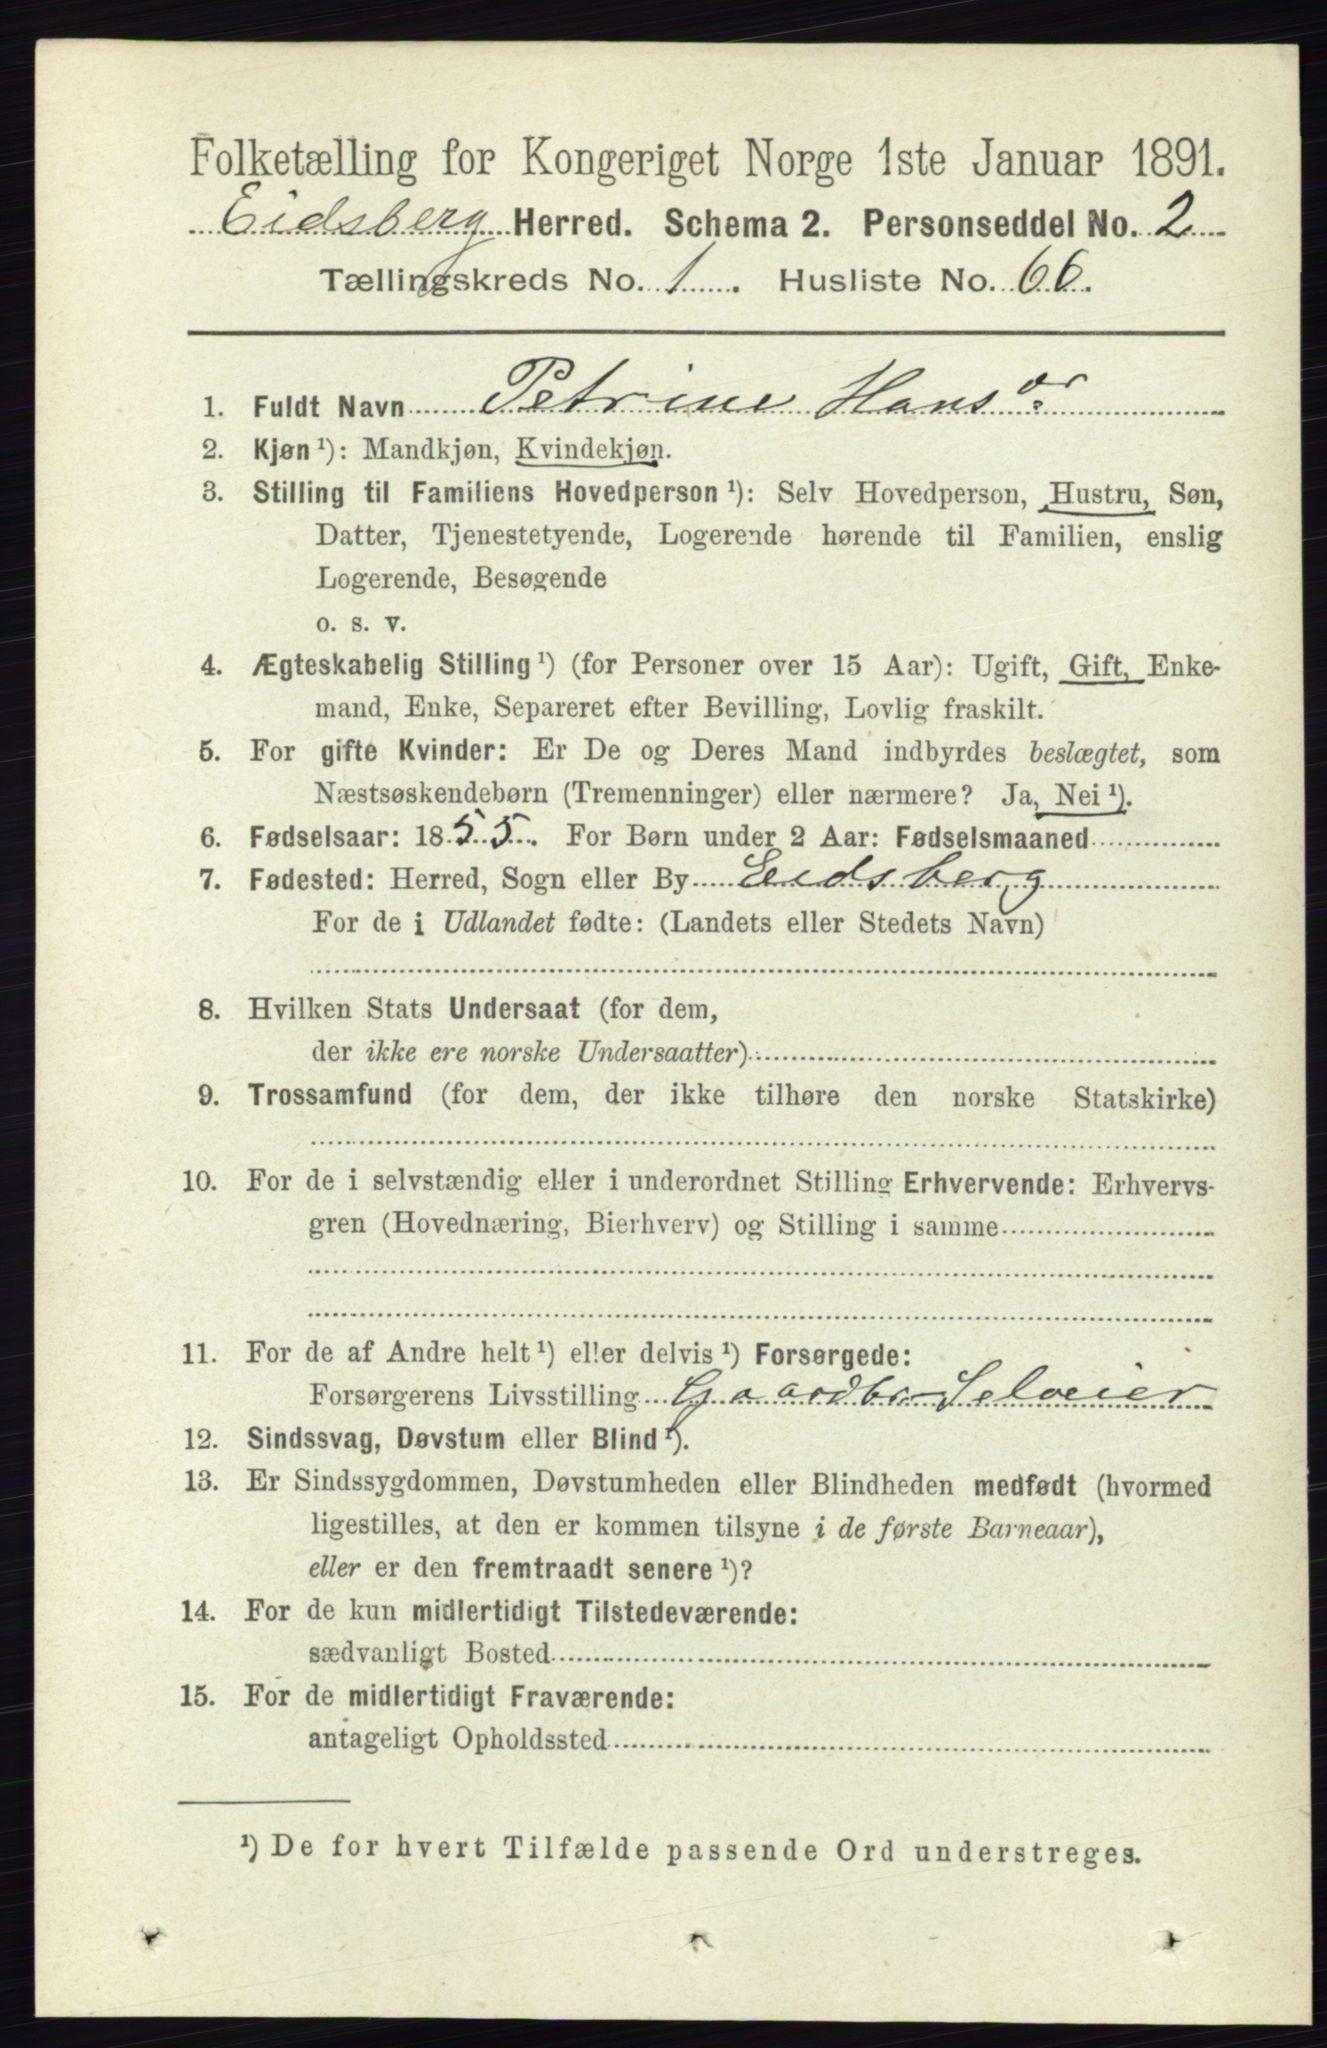 Folketælling for Kongeriget Norge 1ste Januar 1891.
Eidsberg Herred. Schema 2. Personseddel No. 2
Tællingskreds No. 1. Husliste No. 66.
1. Fuldt Navn Petrine Hansdr
2. Kjøn ¹): Mandkjøn, Kvindekjøn.
3. Stilling til Familiens Hovedperson ¹): Selv Hovedperson, Hustru, Søn,
Datter, Tjenestetyende, Logerende hørende til Familien, enslig
Logerende, Besøgende
o. s. v.
4. Ægteskabelig Stilling ¹) (for Personer over 15 Aar): Ugift, Gift, Enke-
mand, Enke, Separeret efter Bevilling, Lovlig fraskilt.
5. For gifte Kvinder: Er De og Deres Mand indbyrdes beslægtet, som
Næstsøskendebørn (Tremenninger) eller nærmere? Ja, Nei ¹).
6. Fødselsaar: 1855. For Børn under 2 Aar: Fødselsmaaned
7. Fødested: Herred, Sogn eller By Eidsberg
For de i Udlandet fødte: (Landets eller Stedets Navn)
8. Hvilken Stats Undersaat (for dem,
der ikke ere norske Undersaatter)
9. Trossamfund (for dem, der ikke tilhøre den norske Statskirke)
10. For de i selvstændig eller i underordnet Stilling Erhvervende: Erhvervs-
gren (Hovednæring, Bierhverv) og Stilling i samme
11. For de af Andre helt ¹) eller delvis ¹) Forsørgede:
Forsørgerens Livsstilling Gaardbr. Selveier
12. Sindssvag, Døvstum eller Blind ¹).
13. Er Sindssygdommen, Døvstumheden eller Blindheden medfødt (hvormed
ligestilles, at den er kommen tilsyne i de første Barneaar),
eller er den fremtraadt senere ¹)?
14. For de kun midlertidigt Tilstedeværende:
sædvanligt Bosted
15. For de midlertidigt Fraværende:
antageligt Opholdssted
¹) De for hvert Tilfælde passende Ord understreges.